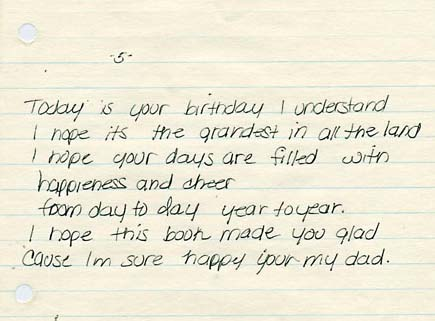 -5-
Today is your birthday I understand
I hope its the grandest in all the land
I hope your days are filled with
happieness and cheer
from day to day year to year.
I hope this book made you glad
'Cause Im sure happy your my dad.